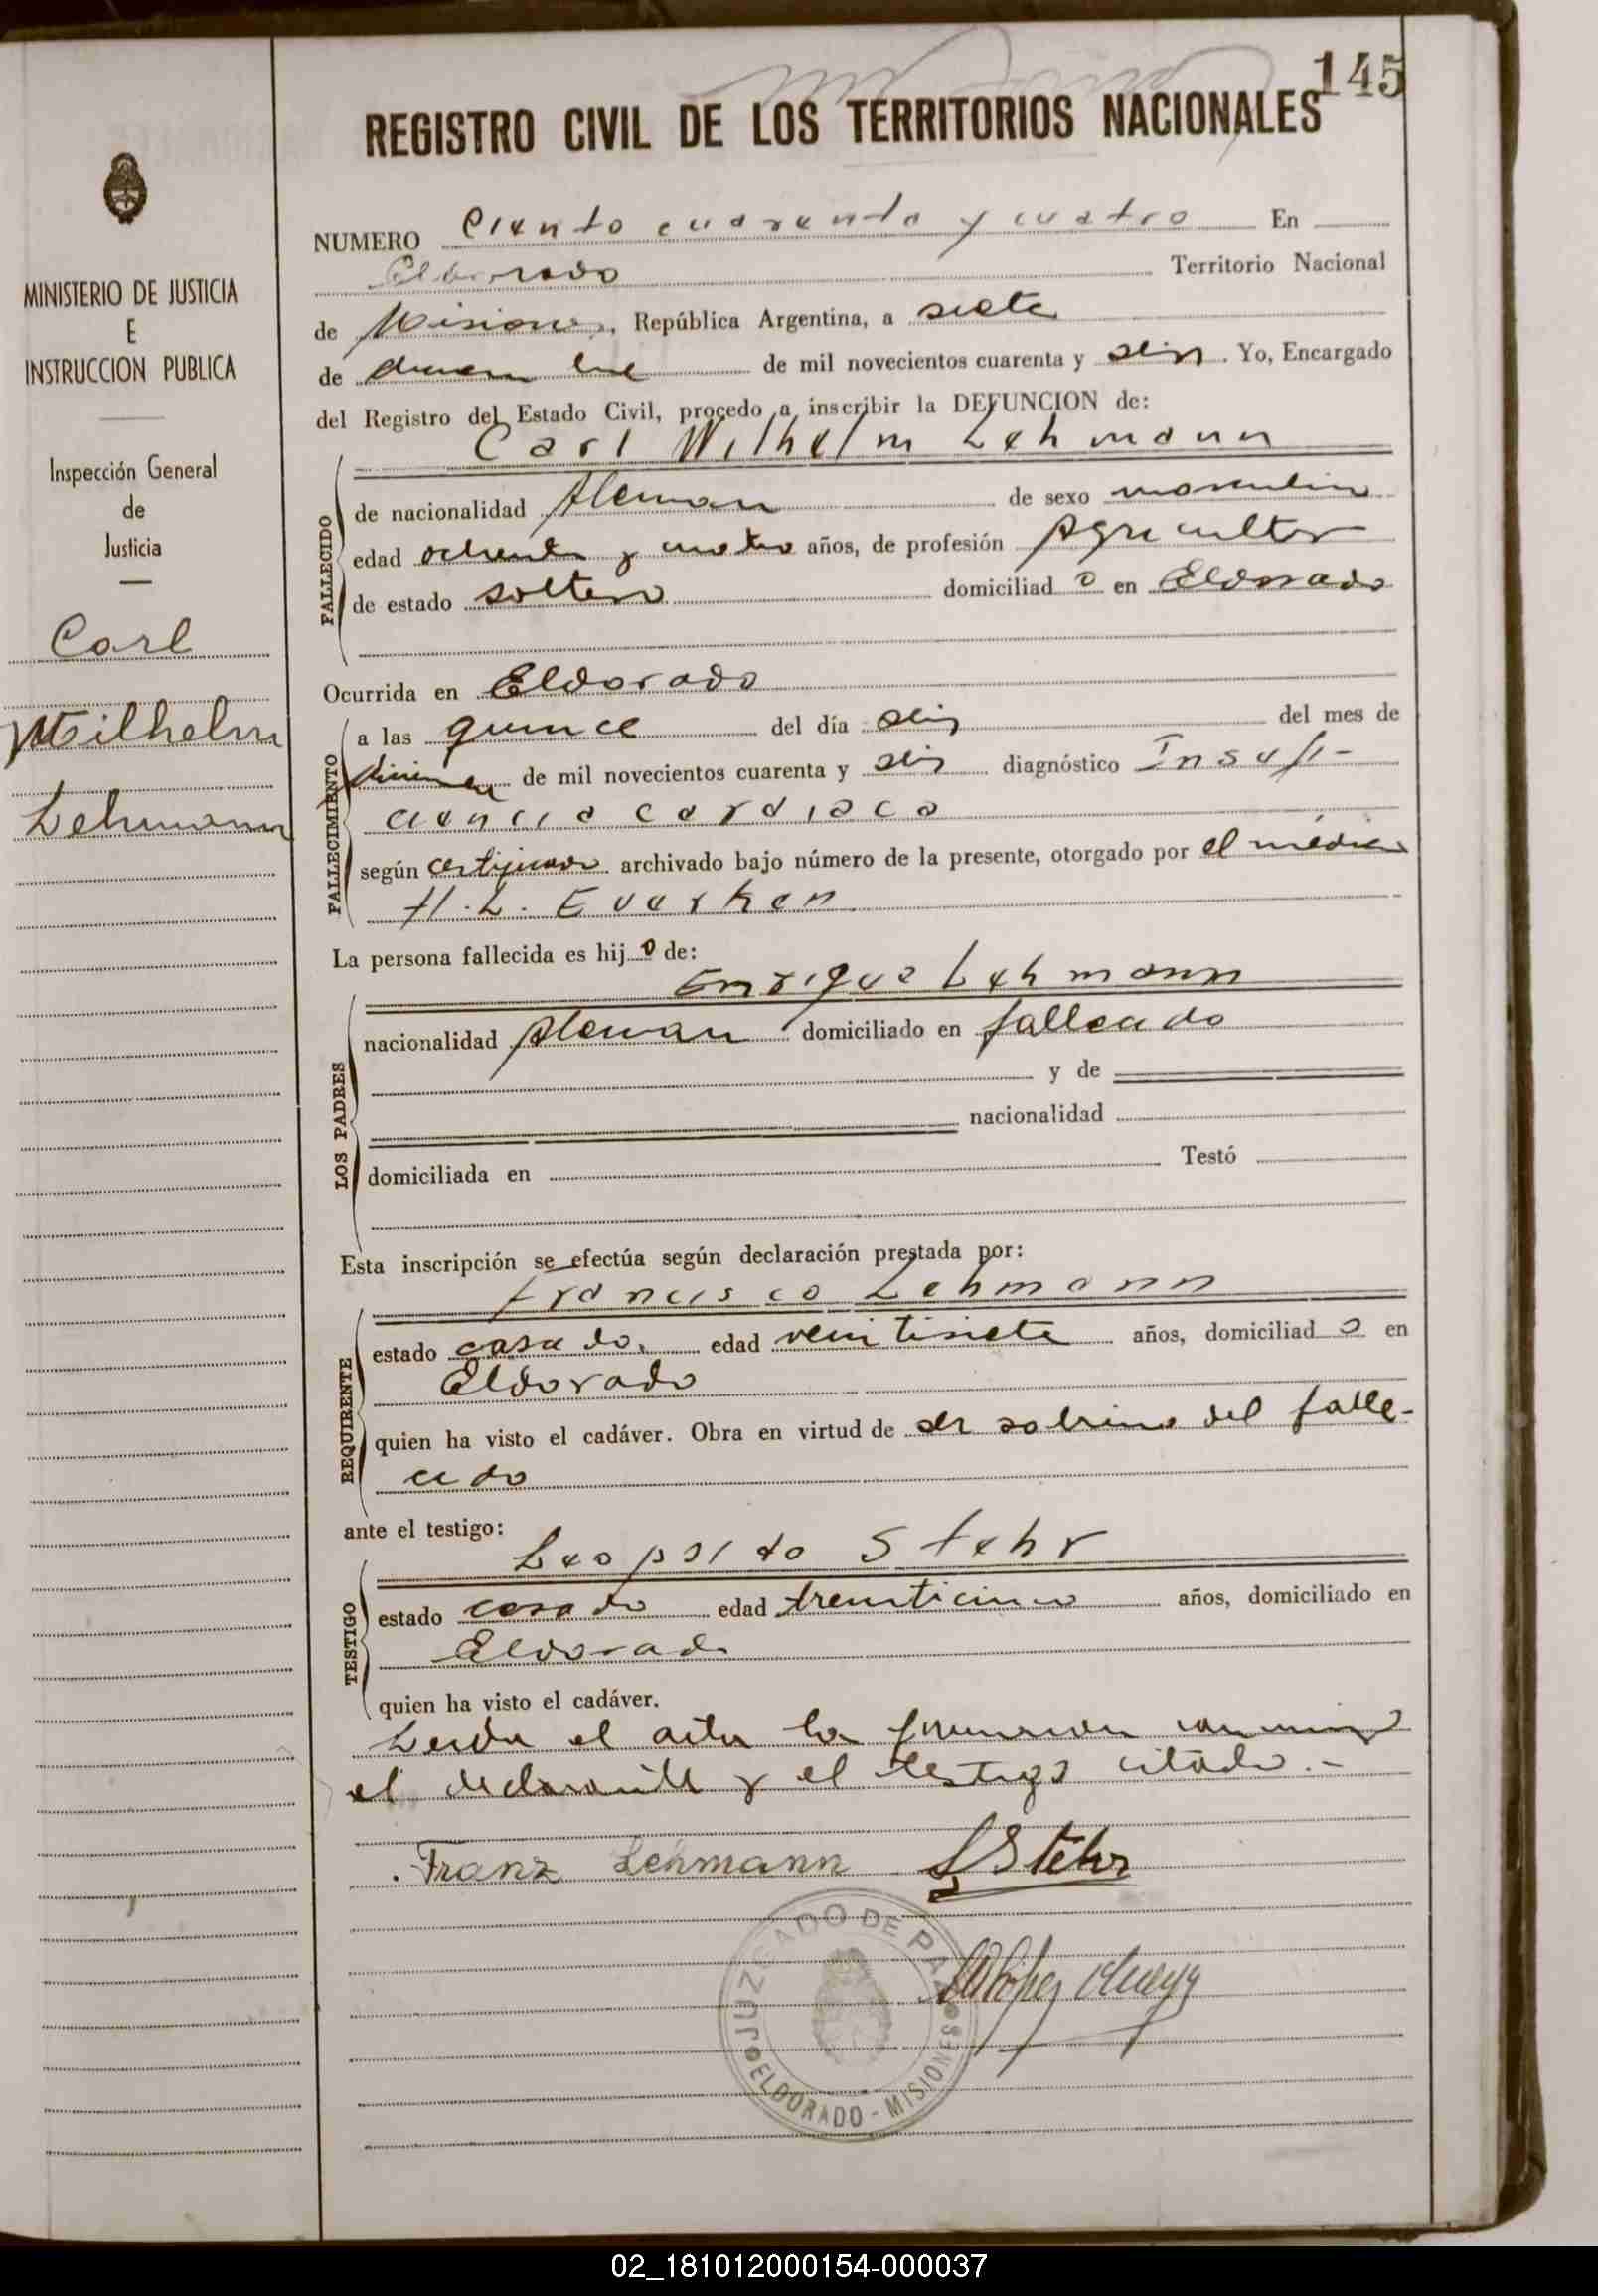 145
REGISTRO CIVIL DE LOS TERRITORIOS NACIONALES
MINISTERIO DE JUSTICIA
E
INSTRUCCION PUBLICA
Inspección General
de
Justicia
Carl
Wilhelm
Lehmann
NUMERO Ciento cuarenta y cuatro En
Eldorado Territorio Nacional
de Misiones, República Argentina, a siete
de diciembre de mil novecientos cuarenta y seis. Yo, Encargado
del Registro del Estado Civil, procedo a inscribir la DEFUNCION de:
Carl Wilhelm Lehmann
FALLECIDO
de nacionalidad Aleman de sexo masculino
edad ochenta y cuatro años, de profesión Agricultor
de estado soltero domiciliad o en Eldorado
Ocurrida en Eldorado
FALLECIMIENTO
a las quince del día seis del mes de
diciembre de mil novecientos cuarenta y seis diagnóstico Insufi-
ciencia cardiaca
según certificado archivado bajo número de la presente, otorgado por el médico
H. L. Everken
La persona fallecida es hij o de:
Enrique Lehmann
LOS PADRES
nacionalidad Aleman domiciliado en fallecido
y de
nacionalidad
domiciliada en Testó
Esta inscripción se efectúa según declaración prestada por:
Francisco Lehmann
REQUIRENTE
estado casado, edad veintisiete años, domiciliad o en
Eldorado
quien ha visto el cadáver. Obra en virtud de ser sobrino del falle-
cido
ante el testigo:
Leopoldo Stehr
TESTIGO
estado casado edad treinticinco años, domiciliado en
Eldorado
quien ha visto el cadáver.
Leida el acta la firmaron conmigo
el declarante y el testigo citado.-
Franz Lehmann LStehr
JUZGADO DE PAZ
ELDORADO - MISIONES
02_181012000154-000037